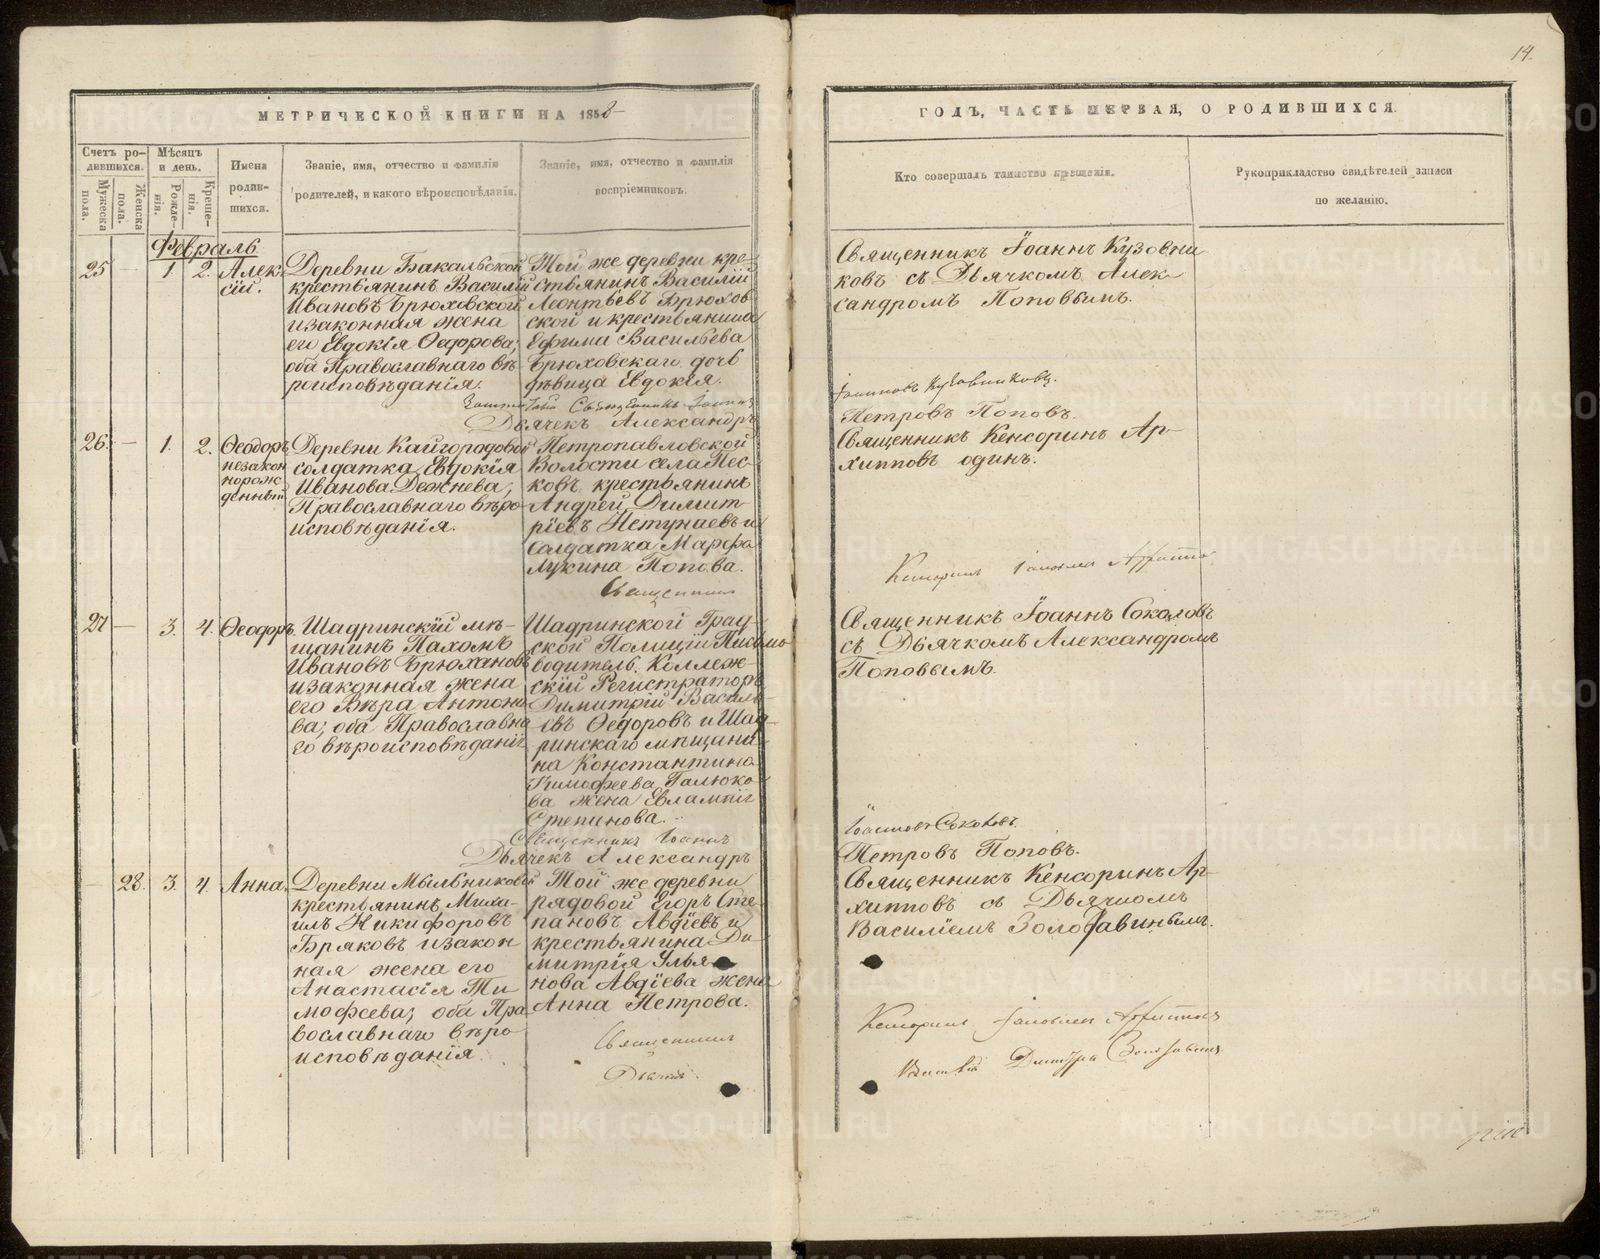 14.
МЕТРИЧЕСКОЙ КНИГИ НА 1858
ГОДЪ, ЧАСТЬ ПЕРВАЯ, О РОДИВШИХСЯ.
Счетъ родившихся.
Мужеска пола.
Женска пола.
Мѣсяцъ и день.
Рожденія.
Крещенія.
Имена родившихся.
Званіе, имя, отчество и фамилію
родителей, и какого вѣроисповѣданія.
Званіе, имя, отчество и фамилія
воспріемниковъ.
Кто совершалъ таинство крещенія.
Рукоприкладство свидѣтелей записи
по желанію.
Февраль
25 — 1. 2. Алек-
сій.
Деревни Бакальской
крестьянинъ Василій
Ивановъ Брюховской
и законная жена
его Евдокія Ѳедорова;
оба Православнаго вѣ
роисповѣданія.
Той же деревни кре-
стьянинъ Василій
Леонтьевъ Брюхов-
ской и крестьянина
Ефима Васильева
Брюховскаго дочь
дѣвица Евдокія.
Священникъ Іоаннъ Кузовни
ковъ съ Дьячкомъ Алек
сандромъ Поповымъ.
Дьячекъ Александръ
Петровъ Поповъ.
26. — 1. 2. Ѳеодоръ
незакон
норож
денный
Деревни Кайгородовой
солдатка Евдокія
Иванова Дежнева,
Православнаго вѣро-
исповѣданія.
Петропавловской
Волости села Пес-
ковъ крестьянинъ
Андрей Димит-
ріевъ Нетунаевъ и
солдатка Марфа
Лукина Попова.
Священникъ Кенсоринъ Ар-
хипповъ одинъ.
Священникъ
27 — 3. 4. Ѳеодоръ.
Шадринскій мѣ-
щанинъ Пахомъ
Ивановъ Брюхановъ
и законная жена
его Вѣра Антоно
ва; оба Православна
го вѣроисповѣданія
Шадринской Град-
ской Полиціи Письмо
водитель Коллеж-
скій Регистраторъ
Димитрій Василь-
евъ Ѳедоровъ и Шад-
ринскаго мѣщани-
на Константина
Тимофеева Галюко-
ва жена Евлампія
Степанова.
Священникъ Іоаннъ Соколовъ
съ Дьячкомъ Александромъ
Поповымъ.
Священникъ Іоаннъ
Іоанновъ Соколовъ.
Дьячекъ Александръ
Петровъ Поповъ.
— 28. 3. 4. Анна.
Деревни Мыльниковой
крестьянинъ Миха-
илъ Никифоровъ
Бряковъ и закон
ная жена его
Анастасія Ти
мофеева; оба Пра
вославнаго вѣро
исповѣданія.
Той же деревни
рядовой Егоръ Сте-
пановъ Авдіевъ и
крестьянина Ди
митрія Улья
нова Авдіева жена
Анна Петрова.
Священникъ Кенсоринъ Ар-
хипповъ съ Дьячкомъ
Василіемъ Золотавинымъ.
Священникъ
Дьячекъ
METRIKI.GASO-URAL.RU